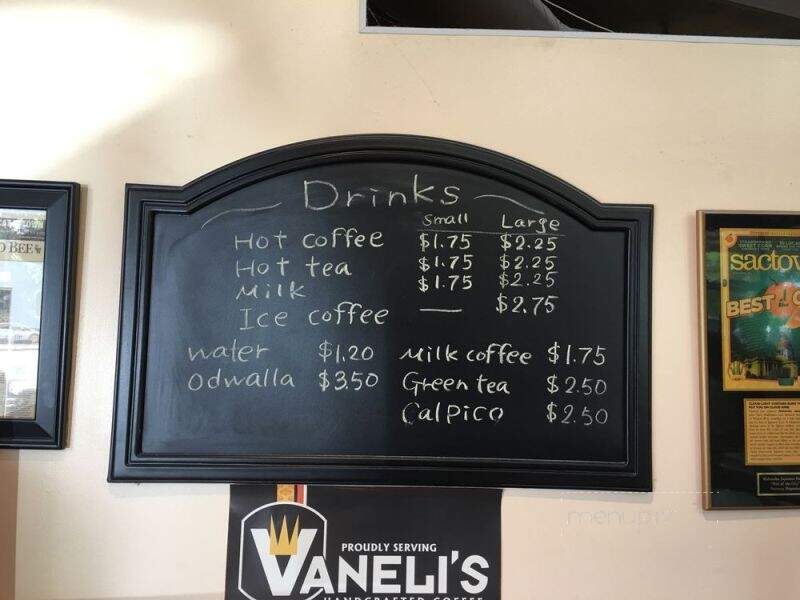 Drinks
Small Large
Hot coffee $1.75 $2.25
Hot tea $1.75 $2.25
Milk $1.75 $2.25
Ice coffee — $2.75
water $1.20
Odwalla $3.50
Milk coffee $1.75
Green tea $2.50
Calpico $2.50
BEE
sacto
BEST
PROUDLY SERVING
VANELI'S
HANDCRAFTED COFFEE